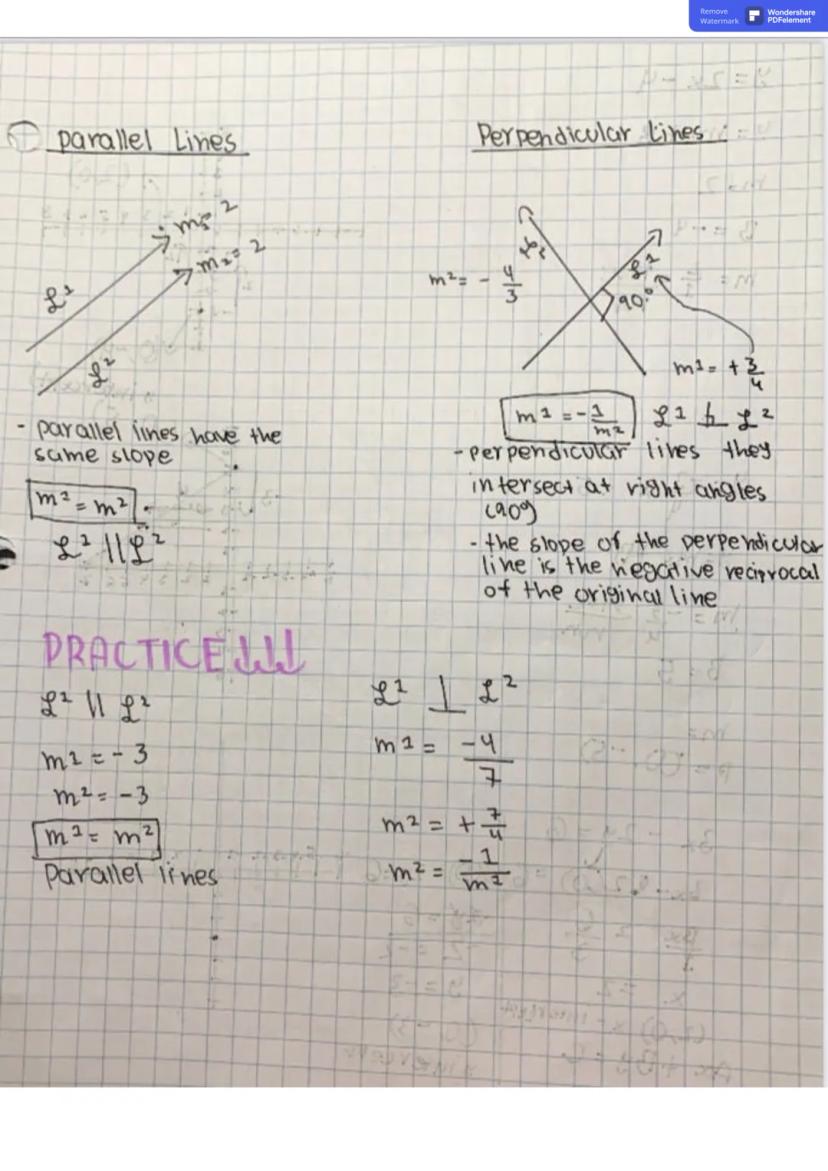 Remove
Watermark
Wondershare
PDFelement
Parallel Lines
m1= 2
m2= 2
L1
L2
- parallel lines have the
same slope
m1 = m2
L1 || L2
Perpendicular Lines
L2
m2= - 4/3
L1
90°
m1= + 3/4
m1 = - 1/m2
L1 ⊥ L2
- perpendicular lines they
intersect at right angles
(90°)
- the slope of the perpendicular
line is the negative reciprocal
of the original line
PRACTICE↓↓↓
L1 || L2
m1 = - 3
m2 = -3
m1 = m2
Parallel lines
L1 ⊥ L2
m1 = -4/7
m2 = + 7/4
m2 = -1/m2